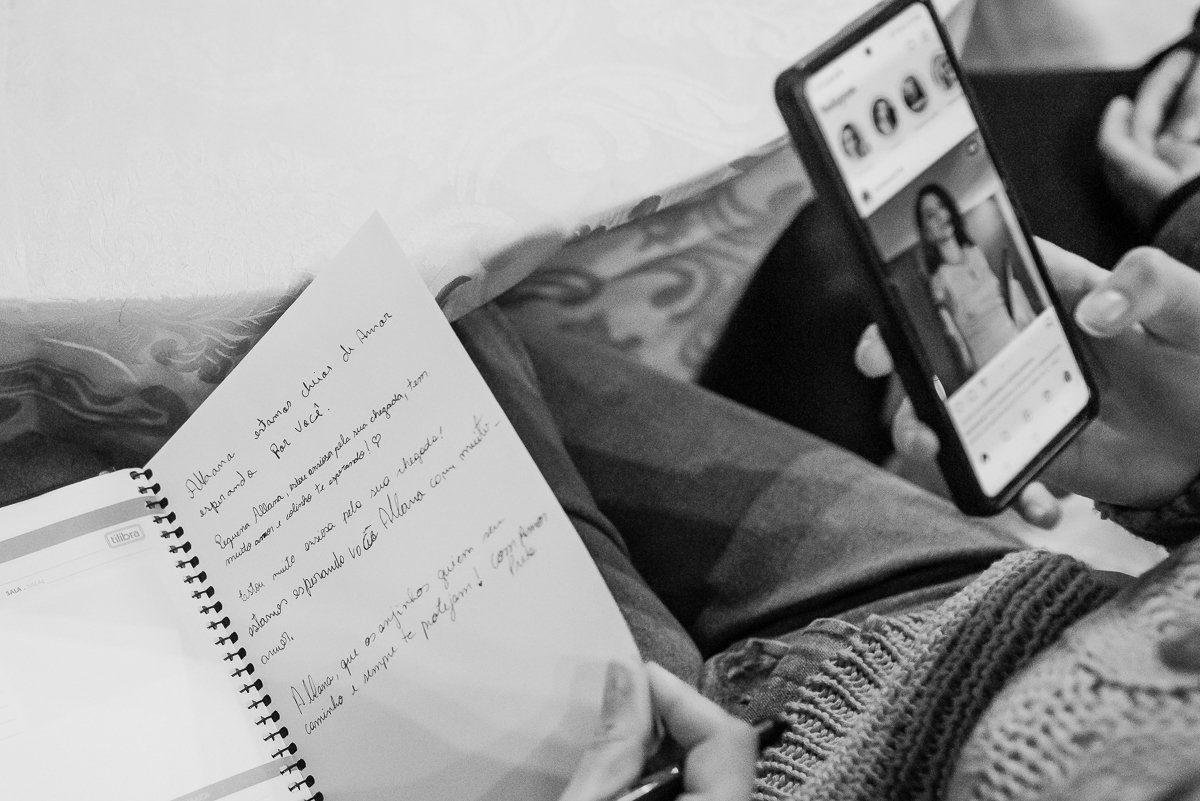 tilibra
SALA
Allana estamos cheios de Amor
esperando Por você.
Pequena Allana, estou ansiosa pela sua chegada, tem
muito amor e colinho te esperando! ♡
Estou muito ansiosa pela sua chegada!
estamos esperando você Allana com muito
amor.
Allana, que os anjinhos guiem seu
caminho e sempre te protejam! com Amor
Instagram